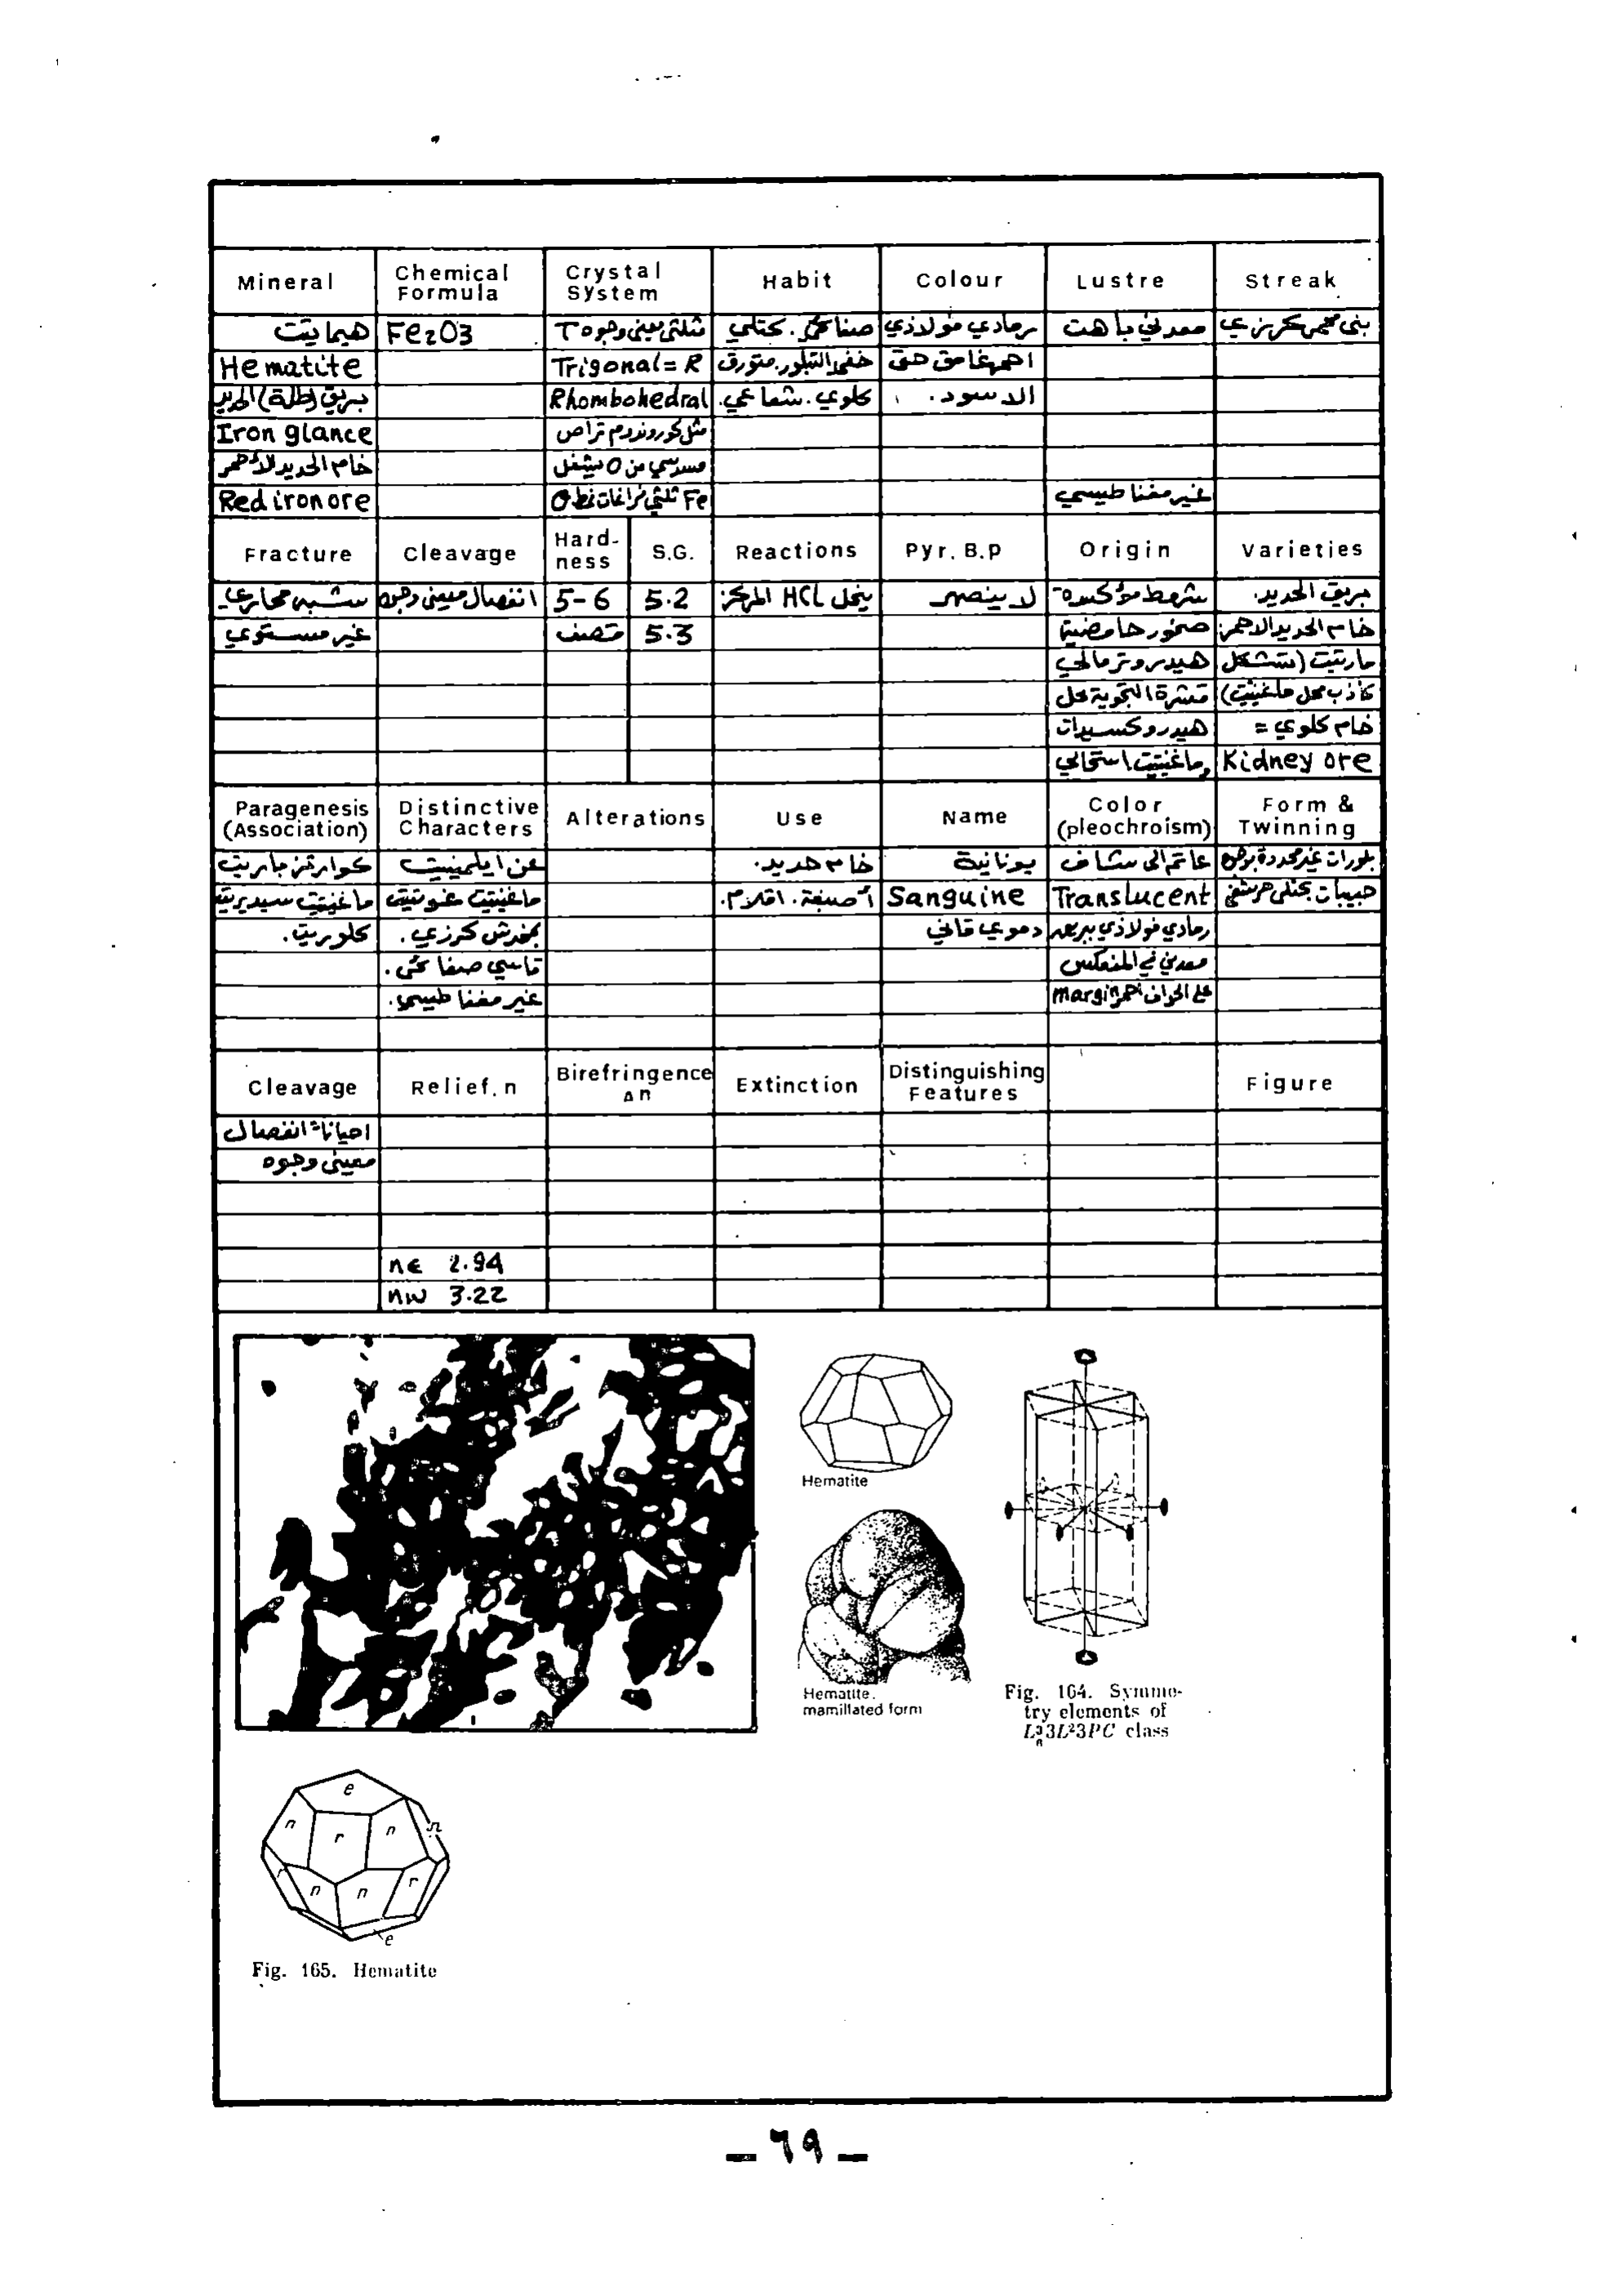 Mineral	Chemical Formula	Crystal System	Habit	Colour	Lustre	Streak
هيمايتت	Fe2O3	مثلثي معيني وجوه T	صفائحي. كتلي	رمادي فولاذي	معدني باهت	بني محمر كرزي
Hematite		Trigonal = R	خفي التبلور. متورق	احمر غامق حتى
بريق (طلة) الحديد		Rhombohedral	كلوي. شعاعي.	الاسود.
Iron glance		مثل كوروندوم تراص
خام الحديد الأحمر		مسدسي من O تشغل
Red iron ore		Fe ثلثي فراغات			غير مغناطيسي
Fracture	Cleavage	Hard-ness	S.G.	Reactions	Pyr. B.p	Origin	Varieties
شبه محاري-	انفصال معيني وجوه	5-6	5.2	ينحل HCL المركز	لا ينصهر	شروط مؤكسدة-	بريق الحديد.
غير مستوي		قصف	5.3			صخور حامضية	خام الحديد الاحمر
هيدروترمالي	مارتيت (تشكل
قشرة التجوية محل	كاذب محل ماغنيتيت)
هيدروكسيدات	خام كلوي =
وماغنيتيت استحالي	Kidney ore
Paragenesis (Association)	Distinctive Characters	Alterations	Use	Name	Color (pleochroism)	Form & Twinning
كوارتز باريت	عن ايلمينيت		خام حديد.	يونانية	عاتم الى شاف	بلورات غير محددة بوضوح
ماغنيتيت سيديريت	ماغنيتيت غوتيت		أصبغة. اقلام.	Sanguine	Translucent	حبيبات كتلي حرشفي
كلوريت.	بمخدش كرزي.			دموي قاني	رمادي فولاذي ببريق
قاسي صفائحي.				معدني في المنعكس
غير مغناطيسي.				margin على الحواف احمر
Cleavage	Relief. n	Birefringence Δn	Extinction	Distinguishing Features		Figure
احياناً انفصال
معيني وجوه
nε 2.94
nω 3.22
Hematite
Hematite.
mamillated form
Fig. 164. Symme-
try elements of
L³₆3L²3PC class
e
n r n n
r n n r
e
Fig. 165. Hematite
– ٦٩ –